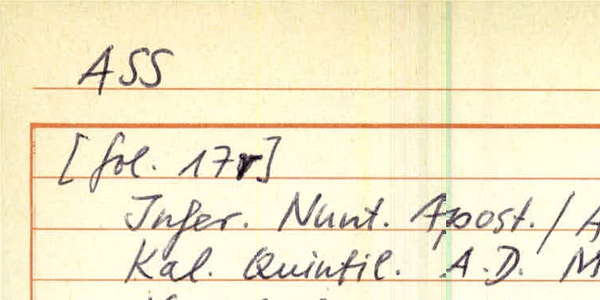 ASS
[fol. 17r]
Infer. Nunt. Apost. / A
Kal. Quintil. A.D. M